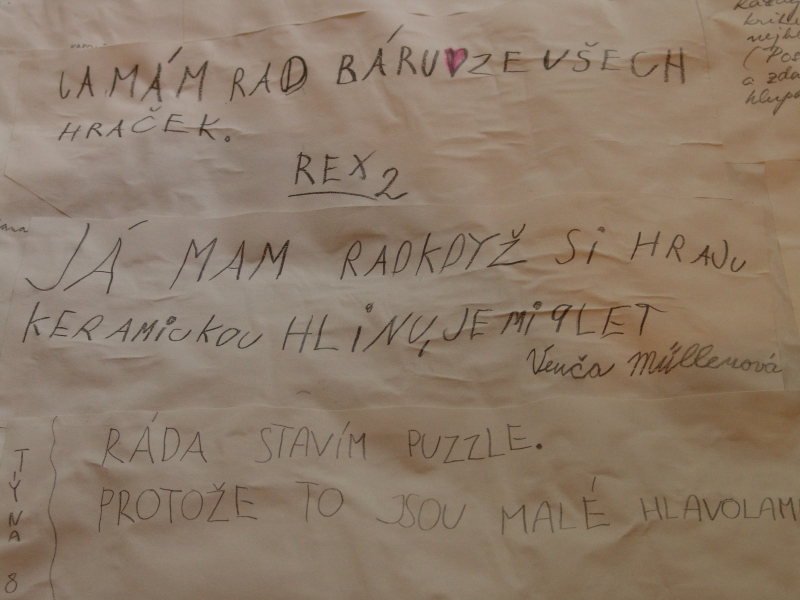 JÁ MÁM RAD BÁRU ZE VŠECH
HRAČEK.
REX 2
JÁ MAM RAD KDYŽ Si HRAJU
KERAMICKOU HLiNU, JE Mi 9 LET
Venča Müllerová
TÝNA 8
RÁDA STAVÍM PUZZLE.
PROTOŽE TO JSOU MALÉ HLAVOLAMY
každý
nejhl
(Pos
a zda
hlupá